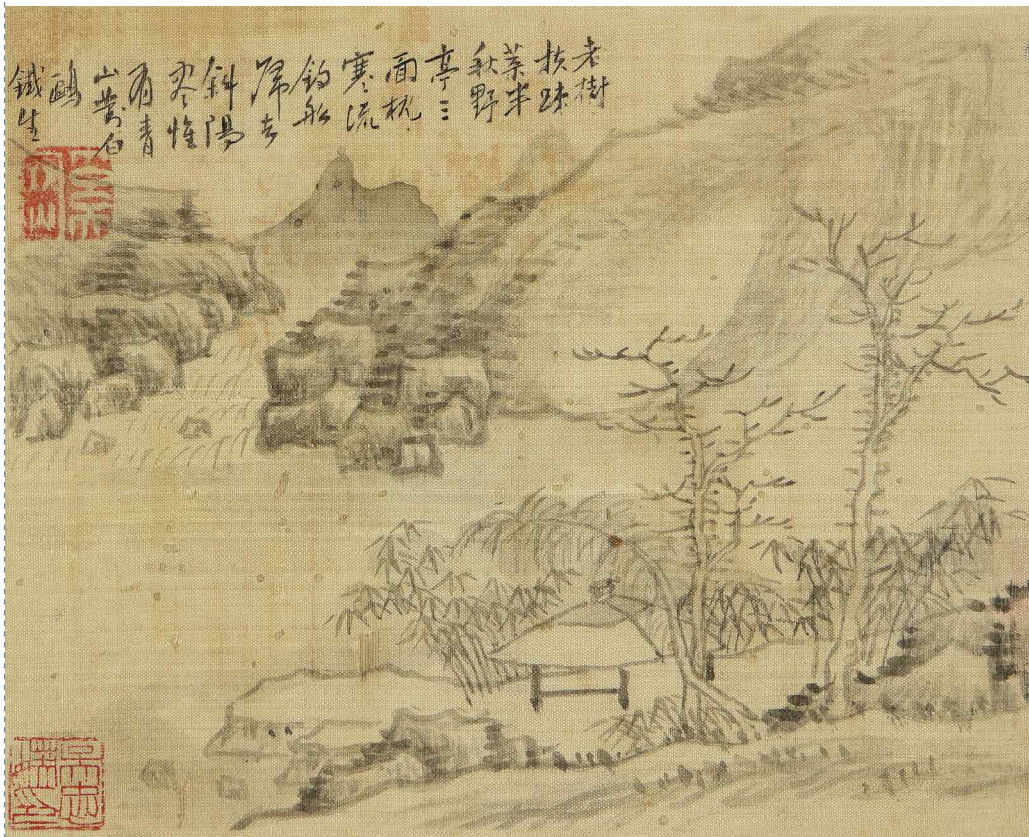 老樹
扶疎
葉半
秋野
亭三
面枕
寒流
釣船
歸去
斜陽
盡惟
有青
山對白
鷗
鐵生